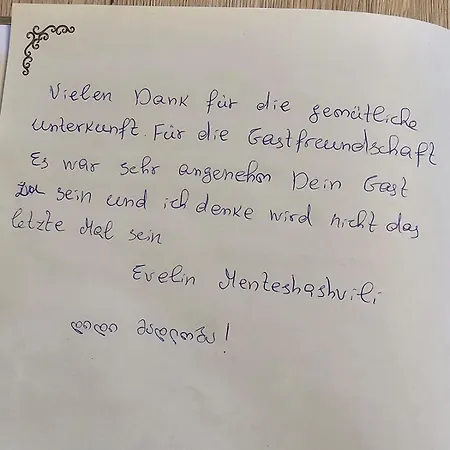 Vielen Dank für die gemütliche
unterkunft. Für die Gastfreundschaft
Es war sehr angenehm Dein Gast
zu sein und ich denke wird nicht das
letzte Mal sein
Evelin Menteshashvili
დიდი მადლობა!